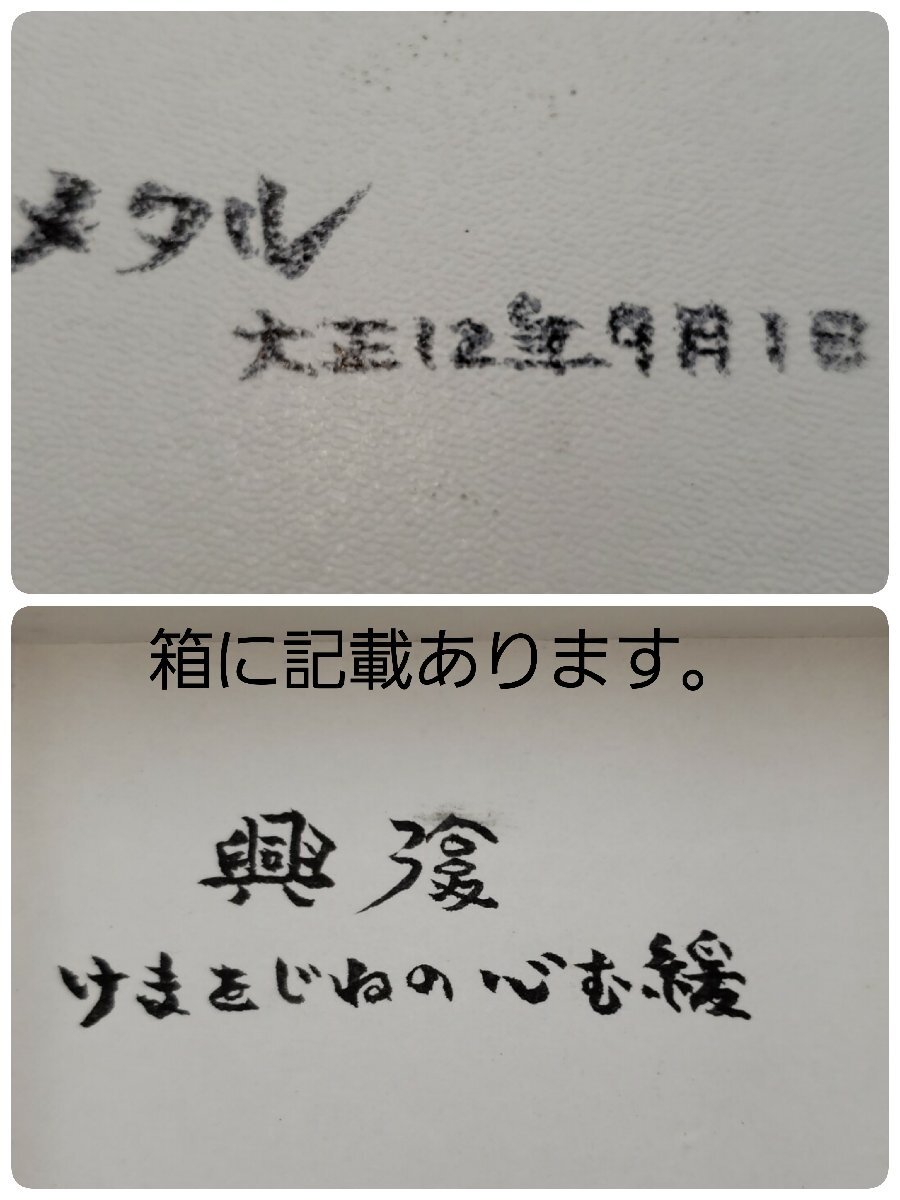 メタル
大正12年9月1日
箱に記載あります。
復興
緩む心のねじをまけ